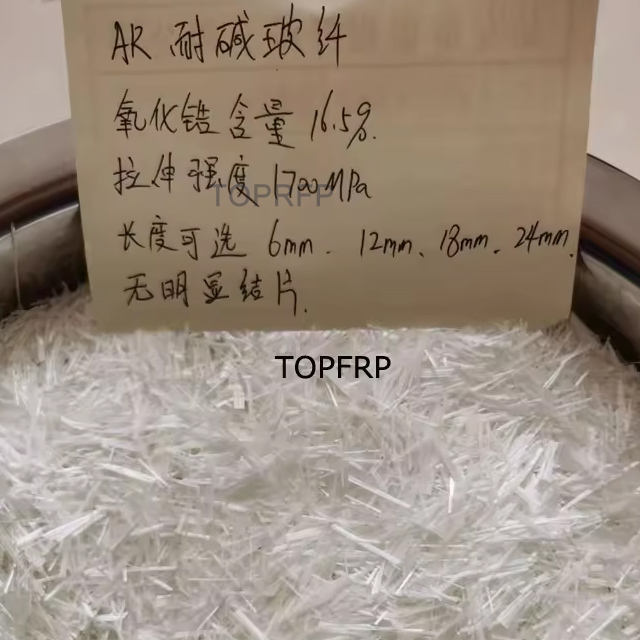 AR 耐碱玻纤
氧化锆含量 16.5%.
拉伸强度 1700MPa
TOPRFP
长度可选 6mm、12mm、18mm、24mm.
无明显结片.
TOPFRP